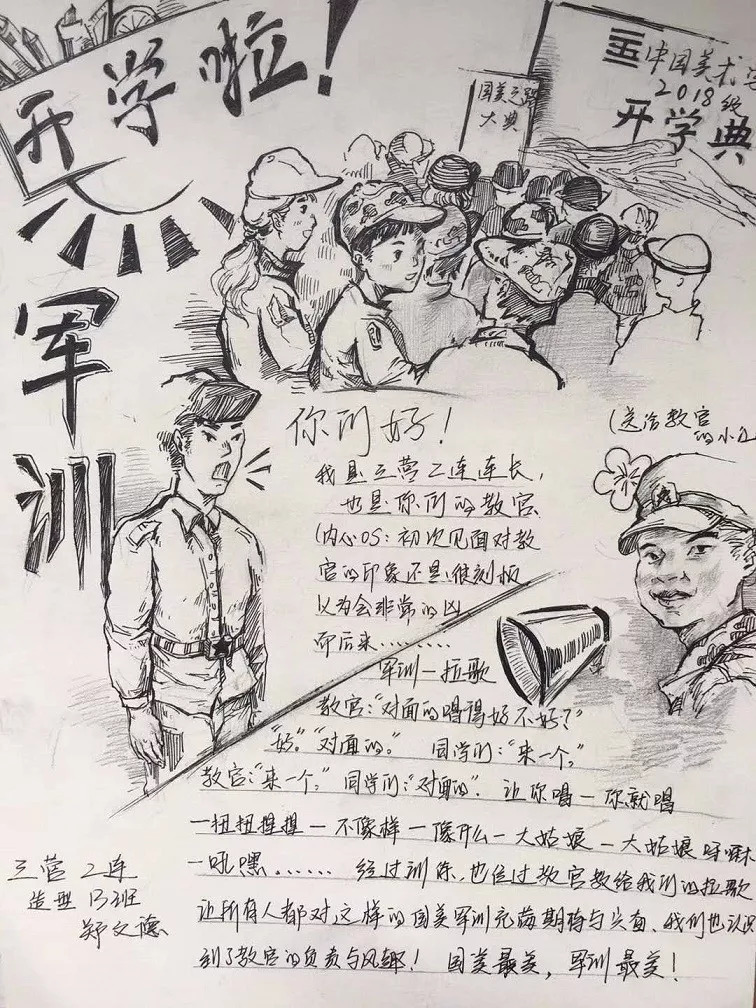 开学啦！
中国美术学
2018级
开学典
国美之路
大典
军训
你们好！
(送给教官
的小
我是三营二连连长，
也是你们的教官
(内心OS：初次见面对教
官的印象还是很刻板
以为会非常的凶
而后来………
军训—拉歌
教官：“对面的唱得好不好？”
“好。”“对面的。” 同学们：“来一个。”
教官：“来一个。” 同学们：“对面的”. 让你唱—你就唱
—扭扭捏捏—不像样—像什么—大姑娘—大姑娘呀
—吼嘿…… 经过训练，也经过教官教给我们的拉歌
让所有人都对这样的国美军训充满期待与兴奋、我们也认识
到了教官的负责与风趣！ 国美最美，军训最美！
三营二连
造型13班
郑文德